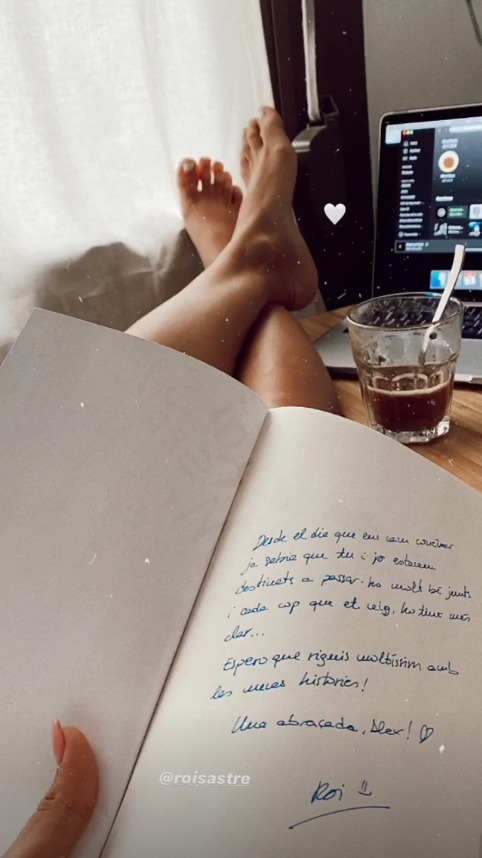 Desde el dia que ens vam conèixer
ja sabia que tu i jo estàvem
destinats a passar-ho molt bé junts
i cada cop que et veig, ho tinc més
clar...
Espero que riguis moltíssim amb
les meves històries!
Una abraçada, Alex! ♡
@roisastre
Roi